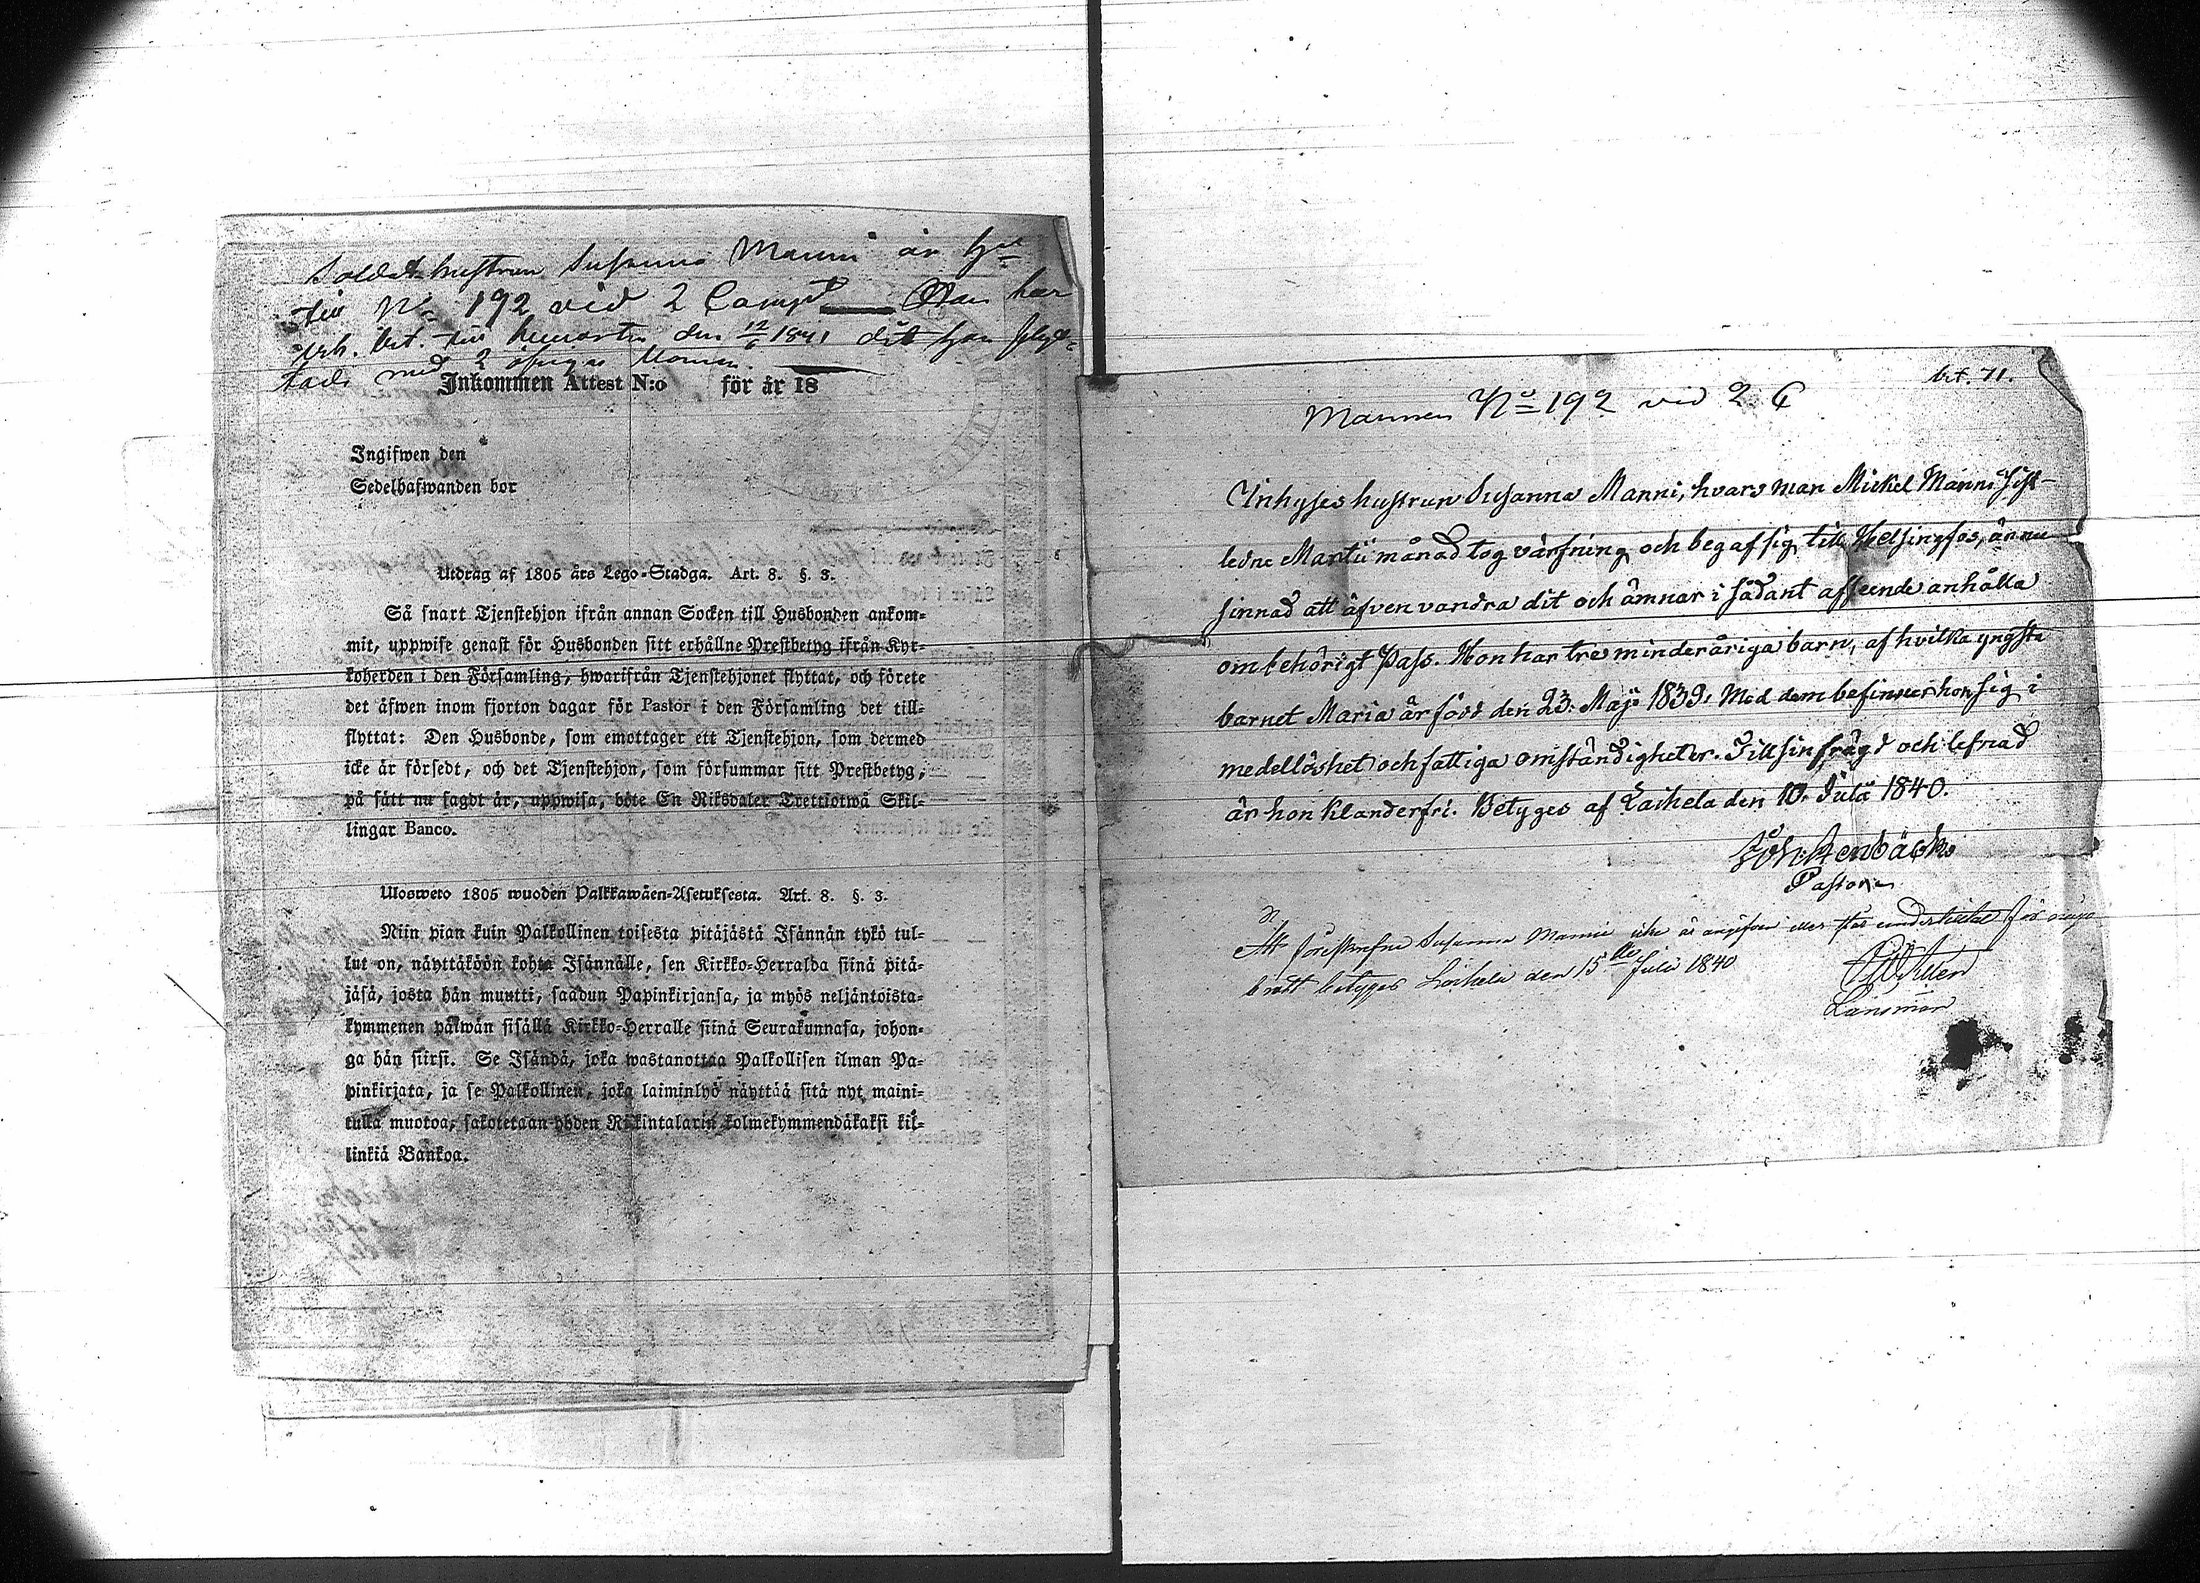 Soldatshustrun Susanna Manni är
N:o 192 vid 2 Comp. Man har
erh. bet. den 12/6 1841 dit hon
med 2
Inkommen Attest N:o för år 18
Ingifwen den
Sedelhafwanden bor
Utdrag af 1805 års Lego-Stadga. Art. 8. §. 3.
Så snart Tjenstehjon ifrån annan Socken till Husbonden ankom-
mit, uppwise genast för Husbonden sitt erhållne Prestbetyg ifrån Kyr-
koherden i den Församling, hwarifrån Tjenstehjonet flyttat, och förete
det äfwen inom fjorton dagar för Pastor i den Församling det till-
flyttat: Den Husbonde, som emottager ett Tjenstehjon, som dermed
icke är försedt, och det Tjenstehjon, som försummar sitt Prestbetyg,
på sätt nu sagdt är, uppwisa, böte En Riksdaler Trettiotwå Skil-
lingar Banco.
Ulosweto 1805 wuoden Palkkawäen-Asetuksesta. Art. 8. §. 3.
Niin pian kuin Palkollinen toisesta pitäjästä Isännän tykö tul-
lut on, näyttäköön kohta Isännälle, sen Kirkko-Herralda siinä pitä-
jäsä, josta hän muutti, saadun Papinkirjansa, ja myös neljäntoista-
kymmenen päiwän sisällä Kirkko-Herralle siinä Seurakunnasa, johon-
ga hän siirsi. Se Isändä, joka wastanottaa Palkollisen ilman Pa-
pinkirjata, ja se Palkollinen, joka laiminlyö näyttää sitä nyt maini-
tulla muotoa, sakotetaan yhden Riikintalarin kolmekymmendäkaksi kil-
linkiä Bankoa.
bet. 71.
Mannen N:o 192 vid 2 C
Inhyses hustrun Susanna Manni, hvars man Mickel Manni sist-
ledne Martii månad tog värfning och begaf sig till Helsingfos, är nu
sinnad att äfven vandra dit och ämnar i sådant afseende anhålla
om behörigt Pass. Hon har tre minderåriga barn, af hvilka yngsta
barnet Maria är född den 23. Maji 1839. Med dem befinner hon sig i
medellöshet och fattiga omständigheter. Till sin frägd och lefnad
är hon klanderfri. Betyges af Laihela den 10. Julii 1840.
Joh. Stenbäck
Pastor
Att föreskrefne Susanna Manni icke är angifven eller står under tilltal för något
brott betygas Laihela den 15de Juli 1840
Länsman